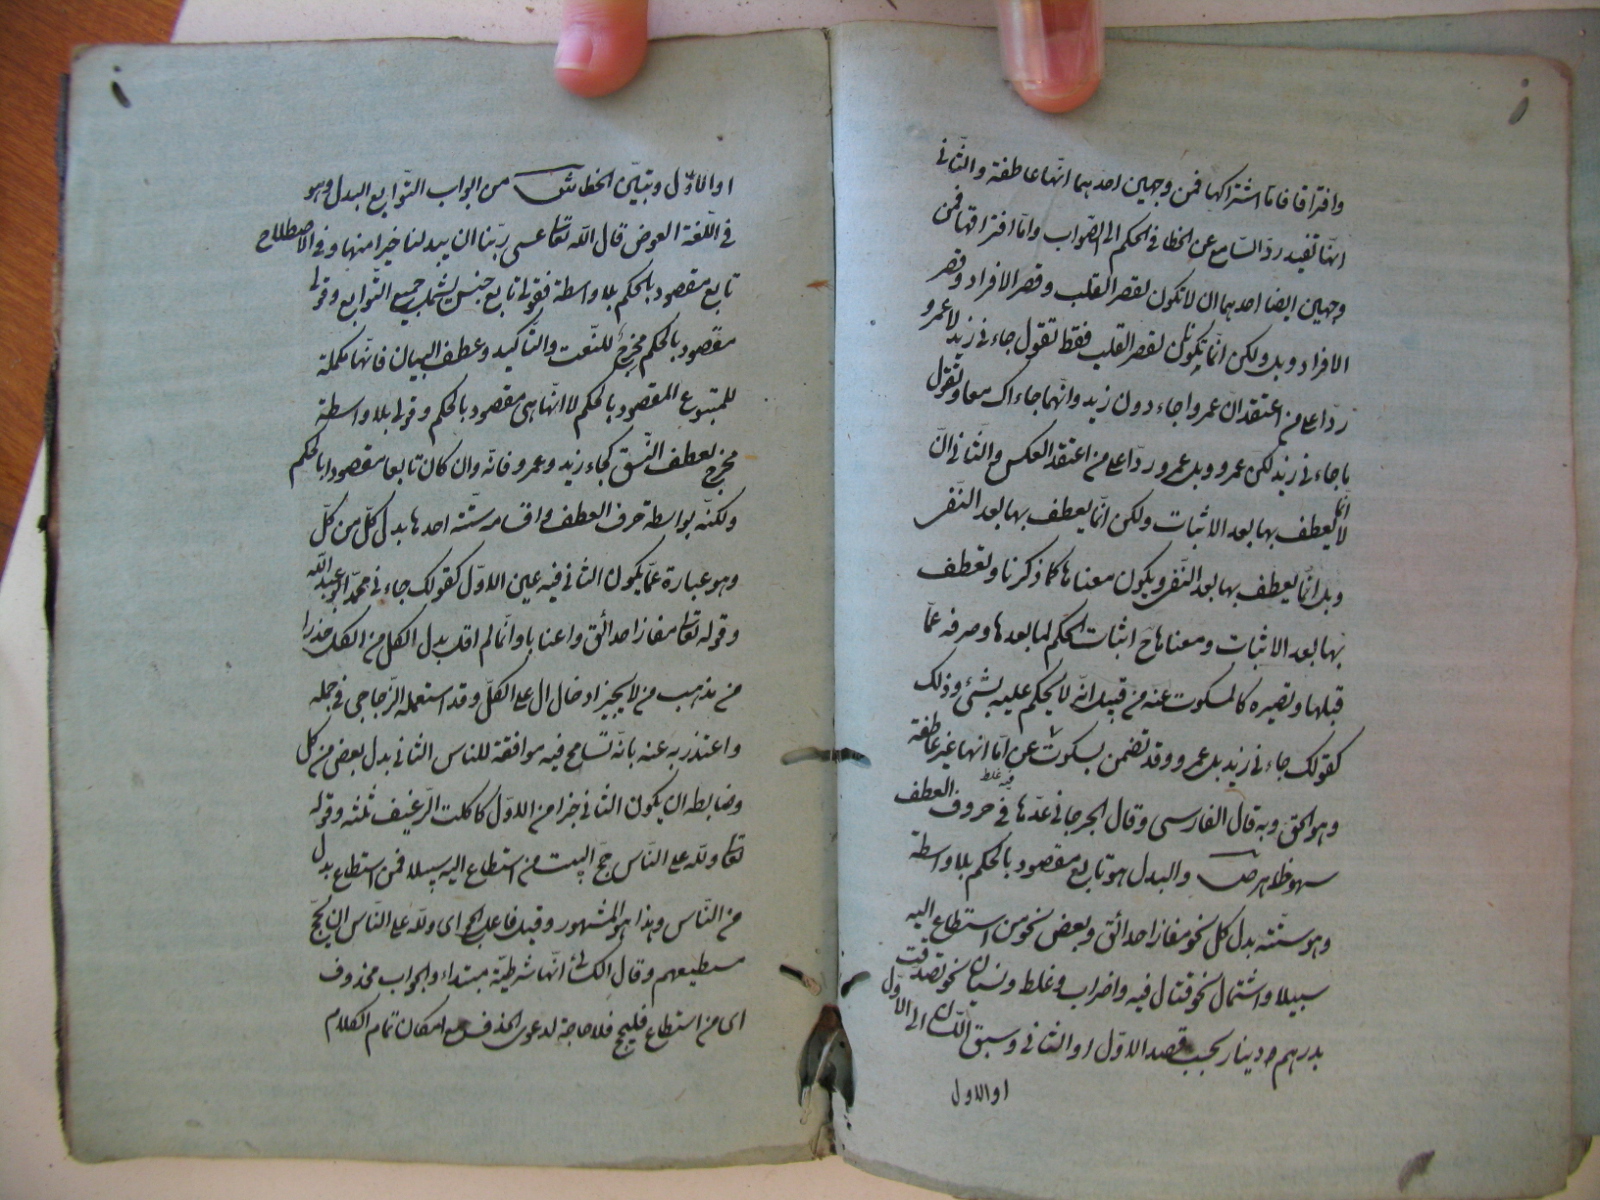 وافتراقا فاما اشتراكها فمن وجهين احدهما انّها عاطفة والثّانى
انها تفيد ردّ السّامع عن الخطا فى الحكم الى الصّواب وامّا افتراقها فمن
وجهين ايضا احدهما ان لا تكون لقصر القلب وقصر الافراد وقصر
الافراد وبل ولكن انّما يكونان لقصر القلب فقط تقول جاءنى زيد لا عمرو
ردّا على من اعتقد انّ عمروا جاء دون زيد وانّهما جاءاك معا وتقول
ما جاءنى زيد لكن عمرو وبل عمرو ردّا على من اعتقد العكس والثّانى انّ
لا انّما يعطف بها بعد الاثبات ولكن انّما يعطف بها بعد النّفى
وبل انّما يعطف بها بعد النّفى ويكون معناها كما ذكرنا وتعطف
بها بعد الاثبات ومعناها ح اثبات الحكم لما بعدها وصرفه عمّا
قبلها وتصيره كالمسكوت عنه من قبيل انّه لا يحكم عليه بشئ وذلك
كقولك جاءنى زيد بل عمرو وقد تضمن بسكوتى عن امّا انها غير عاطفة
وهو الحق وبه قال الفارسى وقال الجرجانى عدّها فى حروف العطف
سهو ظاهر ص والبدل هو تابع مقصود بالحكم بلا واسطة
وهو ستّة بدل كل نحو مفازا حدائق وبعض نحو من استطاع اليه
سبيلا واشتمال نحو قتال فيه واضراب وغلط ونسيان نحو تصدّقت
بدرهم دينار بحسب قصد الاوّل او الثّانى وسبق اللّسان الى الاوّل
او الاول
او الاوّل وتبيّن الخطا ش من ابواب التّوابع البدل وهو
فى اللّغة العوض قال اللّه تعالى عسى ربّنا ان يبدلنا خيرا منها وفى الاصطلاح
تابع مقصود بالحكم بلا واسطة فقولى تابع جنس يشمل جميع التّوابع وقولى
مقصود بالحكم مخرج للنّعت والتّأكيد وعطف البيان فانّها مكملة
للمتبوع المقصود بالحكم لا انّها هى مقصود بالحكم وقولى بلا واسطة
مخرج لعطف النّسق كجاء زيد وعمرو فانّه وان كان تابعا مقصودا بالحكم
ولكنّه بواسطة حرف العطف واقسامه ستّة احدها بدل كلّ من كلّ
وهو عبارة عمّا يكون الثانى فيه عين الاوّل كقولك جاءنى محمّد ابو عبد اللّه
وقوله تعالى مفازا حدائق واعنابا وانّما لم اقل بدل الكل من الكل حذرا
من مذهب من لا يجيز ادخال ال على الكلّ وقد استعمله الزّجاجى فى جمله
واعتذر به عنه بانّه تسامح فيه موافقة للناس الثانى بدل بعض من كل
وضابطه ان يكون الثانى جزا من الاوّل كاكلت الرّغيف ثلثه وقوله
تعالى وللّه على النّاس حجّ البيت من استطاع اليه سبيلا فمن استطاع بدل
من النّاس وهذا هو المشهور وقيل فاعل بالحج اى وللّه على النّاس ان يحجّ
مستطيعهم وقال الكسائى انّها شرطيّة مبتداء والجواب محذوف
اى من استطاع فليحج فلا حاجة لدعوى الحذف مع امكان تمام الكلام